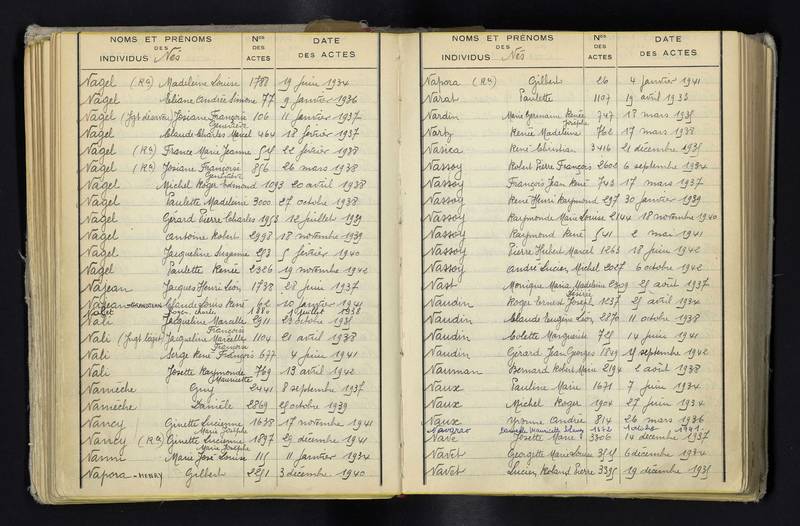 NOMS ET PRÉNOMS DES INDIVIDUS Nés
Nos DES ACTES
DATE DES ACTES
Nagel (Ra) Madeleine Louise 1788 19 juin 1934
Nagel Eliane Andrée Simone 77 9 janvier 1936
Nagel Josiane Françoise Geneviève 106 11 janvier 1937
Nagel Claude Charles Marcel 464 18 février 1937
Nagel (Ra) France Marie Jeanne 22 février 1938
Nagel (Ra) Josiane Françoise Geneviève 856 26 mars 1938
Nagel Michel Roger Edmond 1093 20 avril 1938
Nagel Paulette Madeleine 3000 27 octobre 1938
Nagel Gérard Pierre Charles 1953 12 juillet 1939
Nagel Antoine Robert 2998 18 novembre 1939
Nagel Jacqueline Suzanne 5 février 1940
Nagel Paulette Renée 2326 19 novembre 1942
Najean Jacques Henri Léon 1738 28 juin 1937
Najean Claude Louis René 62 10 janvier 1941
1880 1 juillet 1938
Nali Jacqueline Marcelle Françoise 2911 23 octobre 1935
Nali Jacqueline Marcelle Françoise 1104 21 avril 1938
Nali Serge René François 677 4 juin 1941
Nali Josette Raymonde Mauricette 769 13 avril 1942
Namèche Guy 2441 8 septembre 1937
Namèche Danièle 2869 25 octobre 1939
Nancy Ginette Lucienne Marie Josèphe 1638 17 novembre 1941
Nancy (Ra) Ginette Lucienne Marie Josèphe 1897 29 décembre 1941
Nanni Marie José Louise 115 11 janvier 1934
Napora - HENRY Gilbert 2251 3 décembre 1940
NOMS ET PRÉNOMS DES INDIVIDUS Nés
Nos DES ACTES
DATE DES ACTES
Napora (Ra) Gilbert 26 4 janvier 1941
Narat Paulette 1107 19 avril 1933
Nardin Marie Germaine Renée Josèphe 747 18 mars 1935
Narty Renée Madeleine 762 17 mars 1938
Nasica René Christian 3416 21 décembre 1935
Nassoy Robert Pierre François 2602 6 septembre 1934
Nassoy François Jean René 743 17 mars 1937
Nassoy René Henri Raymond 297 30 janvier 1939
Nassoy Raymonde Marie Louise 2144 18 novembre 1940
Nassoy Raymond René 541 2 mai 1941
Nassoy Pierre Hubert Marcel 1263 18 juin 1942
Nassoy André Lucien Michel 2027 6 octobre 1942
Nast Monique Maria Madeleine Désirée 2309 25 août 1937
Naudin Roger Ernest Joseph 1237 25 avril 1934
Naudin Claude Eugène Léon 2870 11 octobre 1938
Naudin Colette Marguerite 725 14 juin 1941
Naudin Gérard Jean Georges 1809 15 septembre 1942
Nauman Bernard Robert Marie 2194 2 août 1938
Naux Pauline Marie 1671 7 juin 1934
Naux Michel Roger 1904 27 juin 1934
Naux Yvonne Andrée 814 26 mars 1936
Nave Josette Marie 3306 14 décembre 1937
Navet Georgette Marie Louise 6 décembre 1934
Navet Lucien Roland Pierre 3395 19 décembre 1935